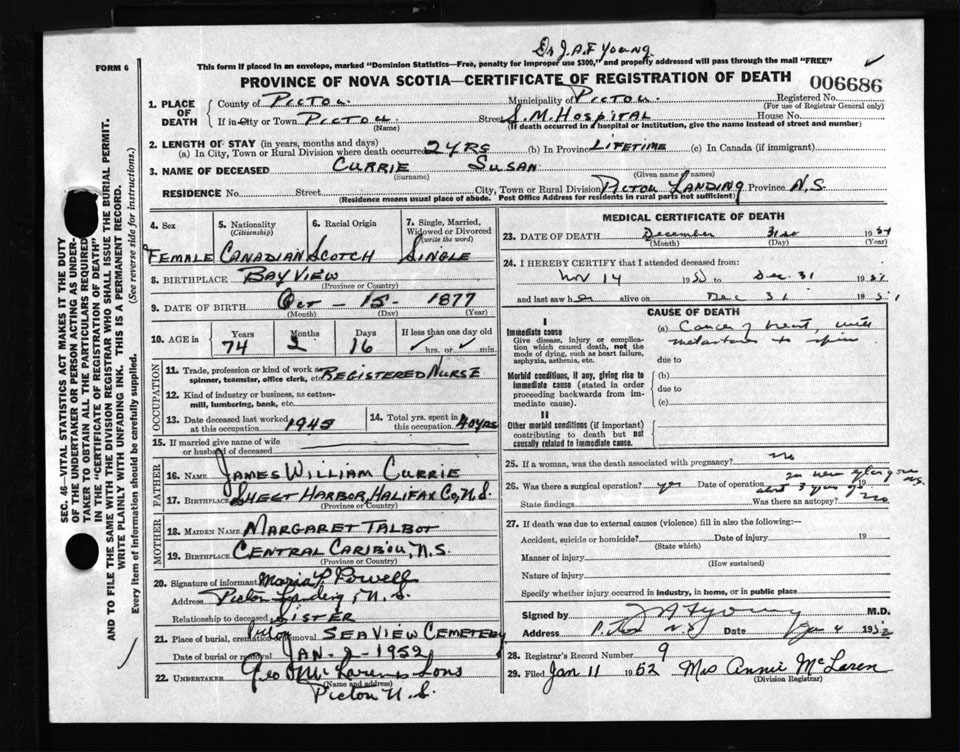 Dr J.A.F Young
FORM 6
This form if placed in an envelope, marked "Dominion Statistics—Free, penalty for improper use $300," and properly addressed will pass through the mail "FREE"
PROVINCE OF NOVA SCOTIA—CERTIFICATE OF REGISTRATION OF DEATH
006686
1. PLACE OF DEATH
County of PICTOU Municipality of PICTOU Registered No.
(For use of Registrar General only)
If in City or Town PICTOU Street S.M. HOSPITAL House No.
(Name) (If death occurred in a hospital or institution, give the name instead of street and number)
2. LENGTH OF STAY (in years, months and days)
(a) In City, Town or Rural Division where death occurred 2 YRS (b) In Province LIFETIME (c) In Canada (if immigrant)
3. NAME OF DECEASED CURRIE SUSAN
(Surname) (Given names)
RESIDENCE No. Street City, Town or Rural Division PICTOU LANDING Province N.S.
(Residence means usual place of abode. Post Office Address for residents in rural parts not sufficient)
SEC. 46—VITAL STATISTICS ACT MAKES IT THE DUTY
OF THE UNDERTAKER OR PERSON ACTING AS UNDER-
TAKER TO OBTAIN ALL THE PARTICULARS REQUIRED
IN THE "CERTIFICATE OF REGISTRATION OF DEATH"
AND TO FILE THE SAME WITH THE DIVISION REGISTRAR WHO SHALL ISSUE THE BURIAL PERMIT.
WRITE PLAINLY WITH UNFADING INK. THIS IS A PERMANENT RECORD.
Every item of information should be carefully supplied. (See reverse side for instructions.)
4. Sex 5. Nationality (Citizenship) 6. Racial Origin 7. Single, Married, Widowed or Divorced (write the word)
FEMALE CANADIAN SCOTCH SINGLE
8. BIRTHPLACE BAY VIEW
(Province or Country)
9. DATE OF BIRTH Oct - 15 - 1877
(Month) (Day) (Year)
10. AGE in Years Months Days If less than one day old
74 2 16 hrs. or min.
OCCUPATION
11. Trade, profession or kind of work as spinner, teamster, office clerk, etc. REGISTERED NURSE
12. Kind of industry or business, as cotton-mill, lumbering, bank, etc.
13. Date deceased last worked at this occupation 1945 14. Total yrs. spent in this occupation 40 YRS
15. If married give name of wife or husband of deceased
FATHER
16. NAME JAMES WILLIAM CURRIE
17. BIRTHPLACE SHEET HARBOR, HALIFAX CO, N.S.
MOTHER
18. MAIDEN NAME MARGARET TALBOT
19. BIRTHPLACE CENTRAL CARIBOU, N.S.
(Province or Country)
20. Signature of informant Powell
Address Pictou Landing, N.S.
Relationship to deceased SISTER
21. Place of burial, cremation or removal Pictou SEAVIEW CEMETERY
Date of burial or removal JAN - 2 - 1952
22. UNDERTAKER Geo McLaren & Sons
(Name and address)
Pictou N.S.
MEDICAL CERTIFICATE OF DEATH
23. DATE OF DEATH December 31st 19
(Month) (Day) (Year)
24. I HEREBY CERTIFY that I attended deceased from:
Nov 14 19 to Dec 31 19
and last saw her alive on Dec 31 1951
CAUSE OF DEATH
I
Immediate cause
Give disease, injury or complication which caused death, not the mode of dying, such as heart failure, asphyxia, asthenia, etc.
(a) Cancer of breast, with
metastases to spine
due to
Morbid conditions, if any, giving rise to immediate cause (stated in order proceeding backwards from immediate cause).
(b)
due to
(c)
II
Other morbid conditions (if important) contributing to death but not causally related to immediate cause.
25. If a woman, was the death associated with pregnancy? no
26. Was there a surgical operation? yes Date of operation about 3 years ago 19
State findings Was there an autopsy? no
27. If death was due to external causes (violence) fill in also the following:—
Accident, suicide or homicide? Date of injury 19
(State which)
Manner of injury
(How sustained)
Nature of injury
Specify whether injury occurred in industry, in home, or in public place
Signed by J A F Young M.D.
Address Pictou N.S Date Jan 4 1952
28. Registrar's Record Number 9
29. Filed Jan 11 1952 Mrs Annie McLaren
(Division Registrar)